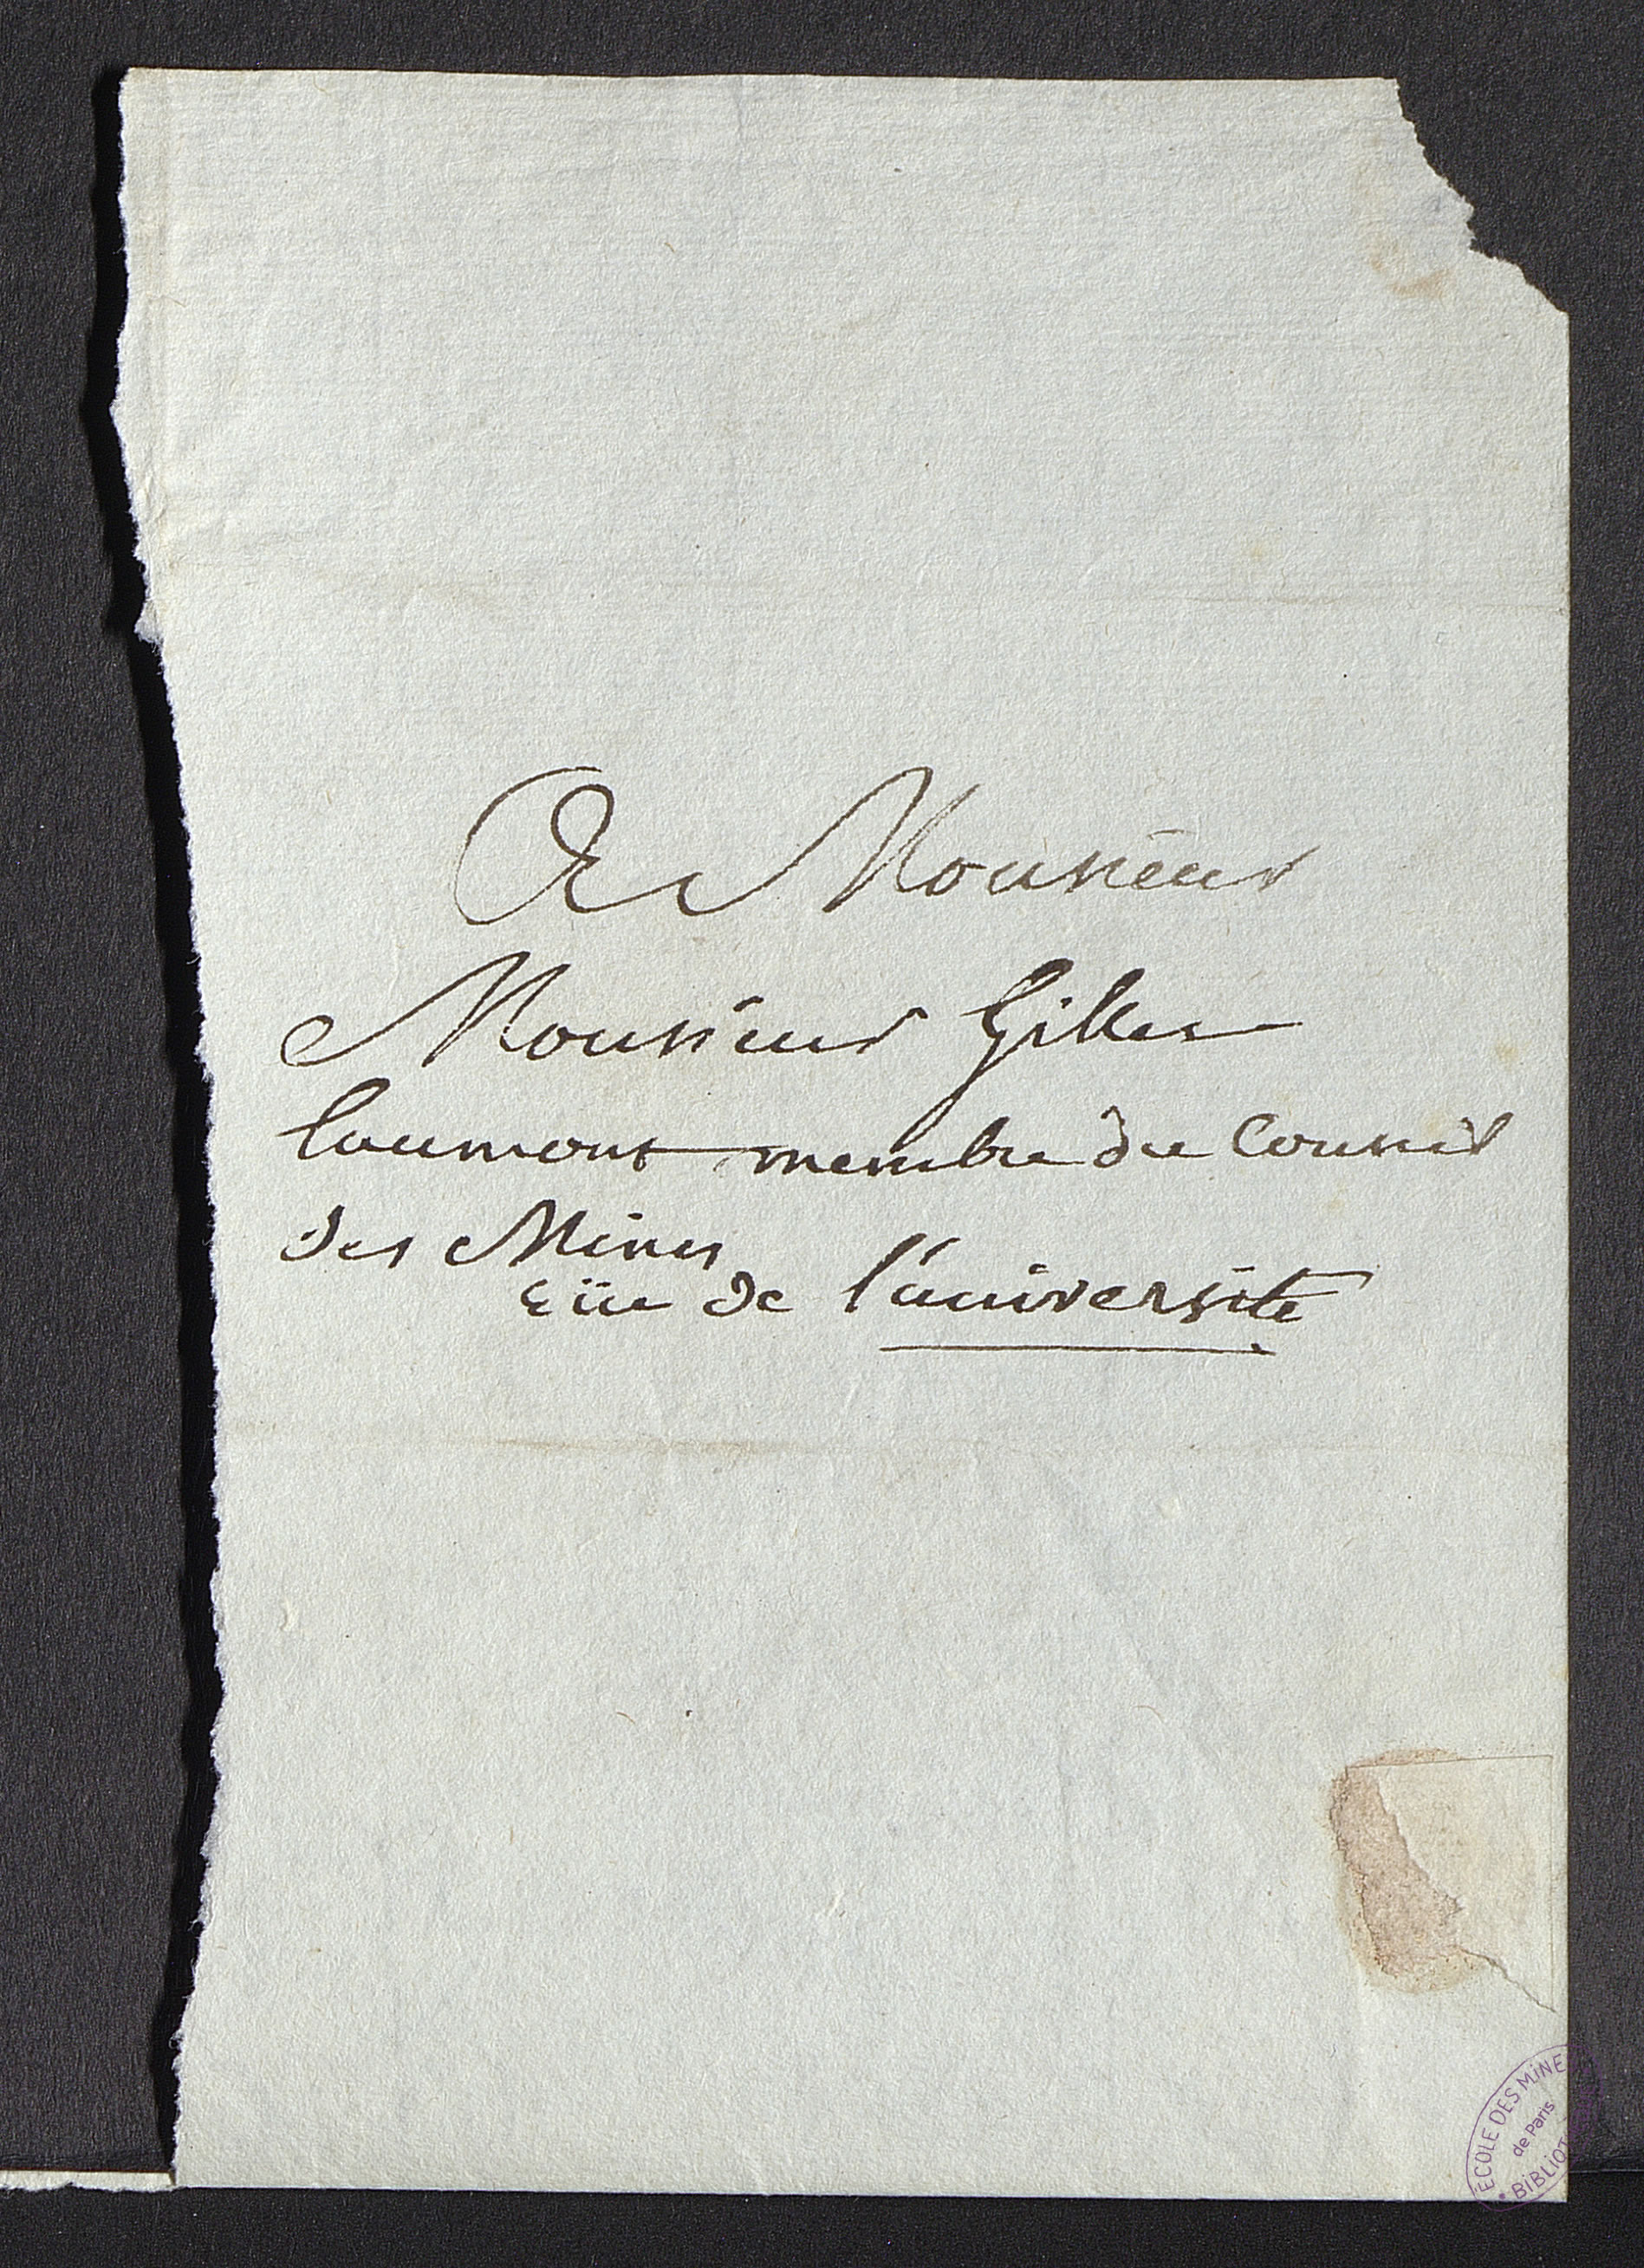 A Monsieur
Monsieur Gilles
laumont membre du Conseil
des Mines
rüe de l'université
ÉCOLE DES MINE
de Paris
BIBLIOT